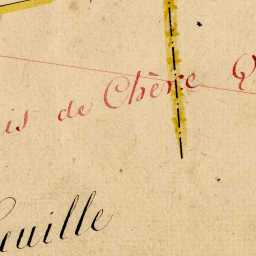 is de Chère Q
euille